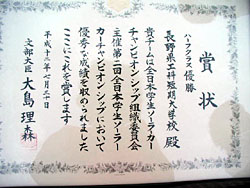 賞状
ハーフクラス優勝
長野県工科短期大学校 殿
貴チームは全日本学生ソーラーカー
チャンピオンシップ組織委員会
主催第二回全日本学生ソーラー
カーチャンピオンシップにおいて
優秀な成績を収められました
ここにこれを賞します
平成十二年七月二十日
文部大臣 大島理森